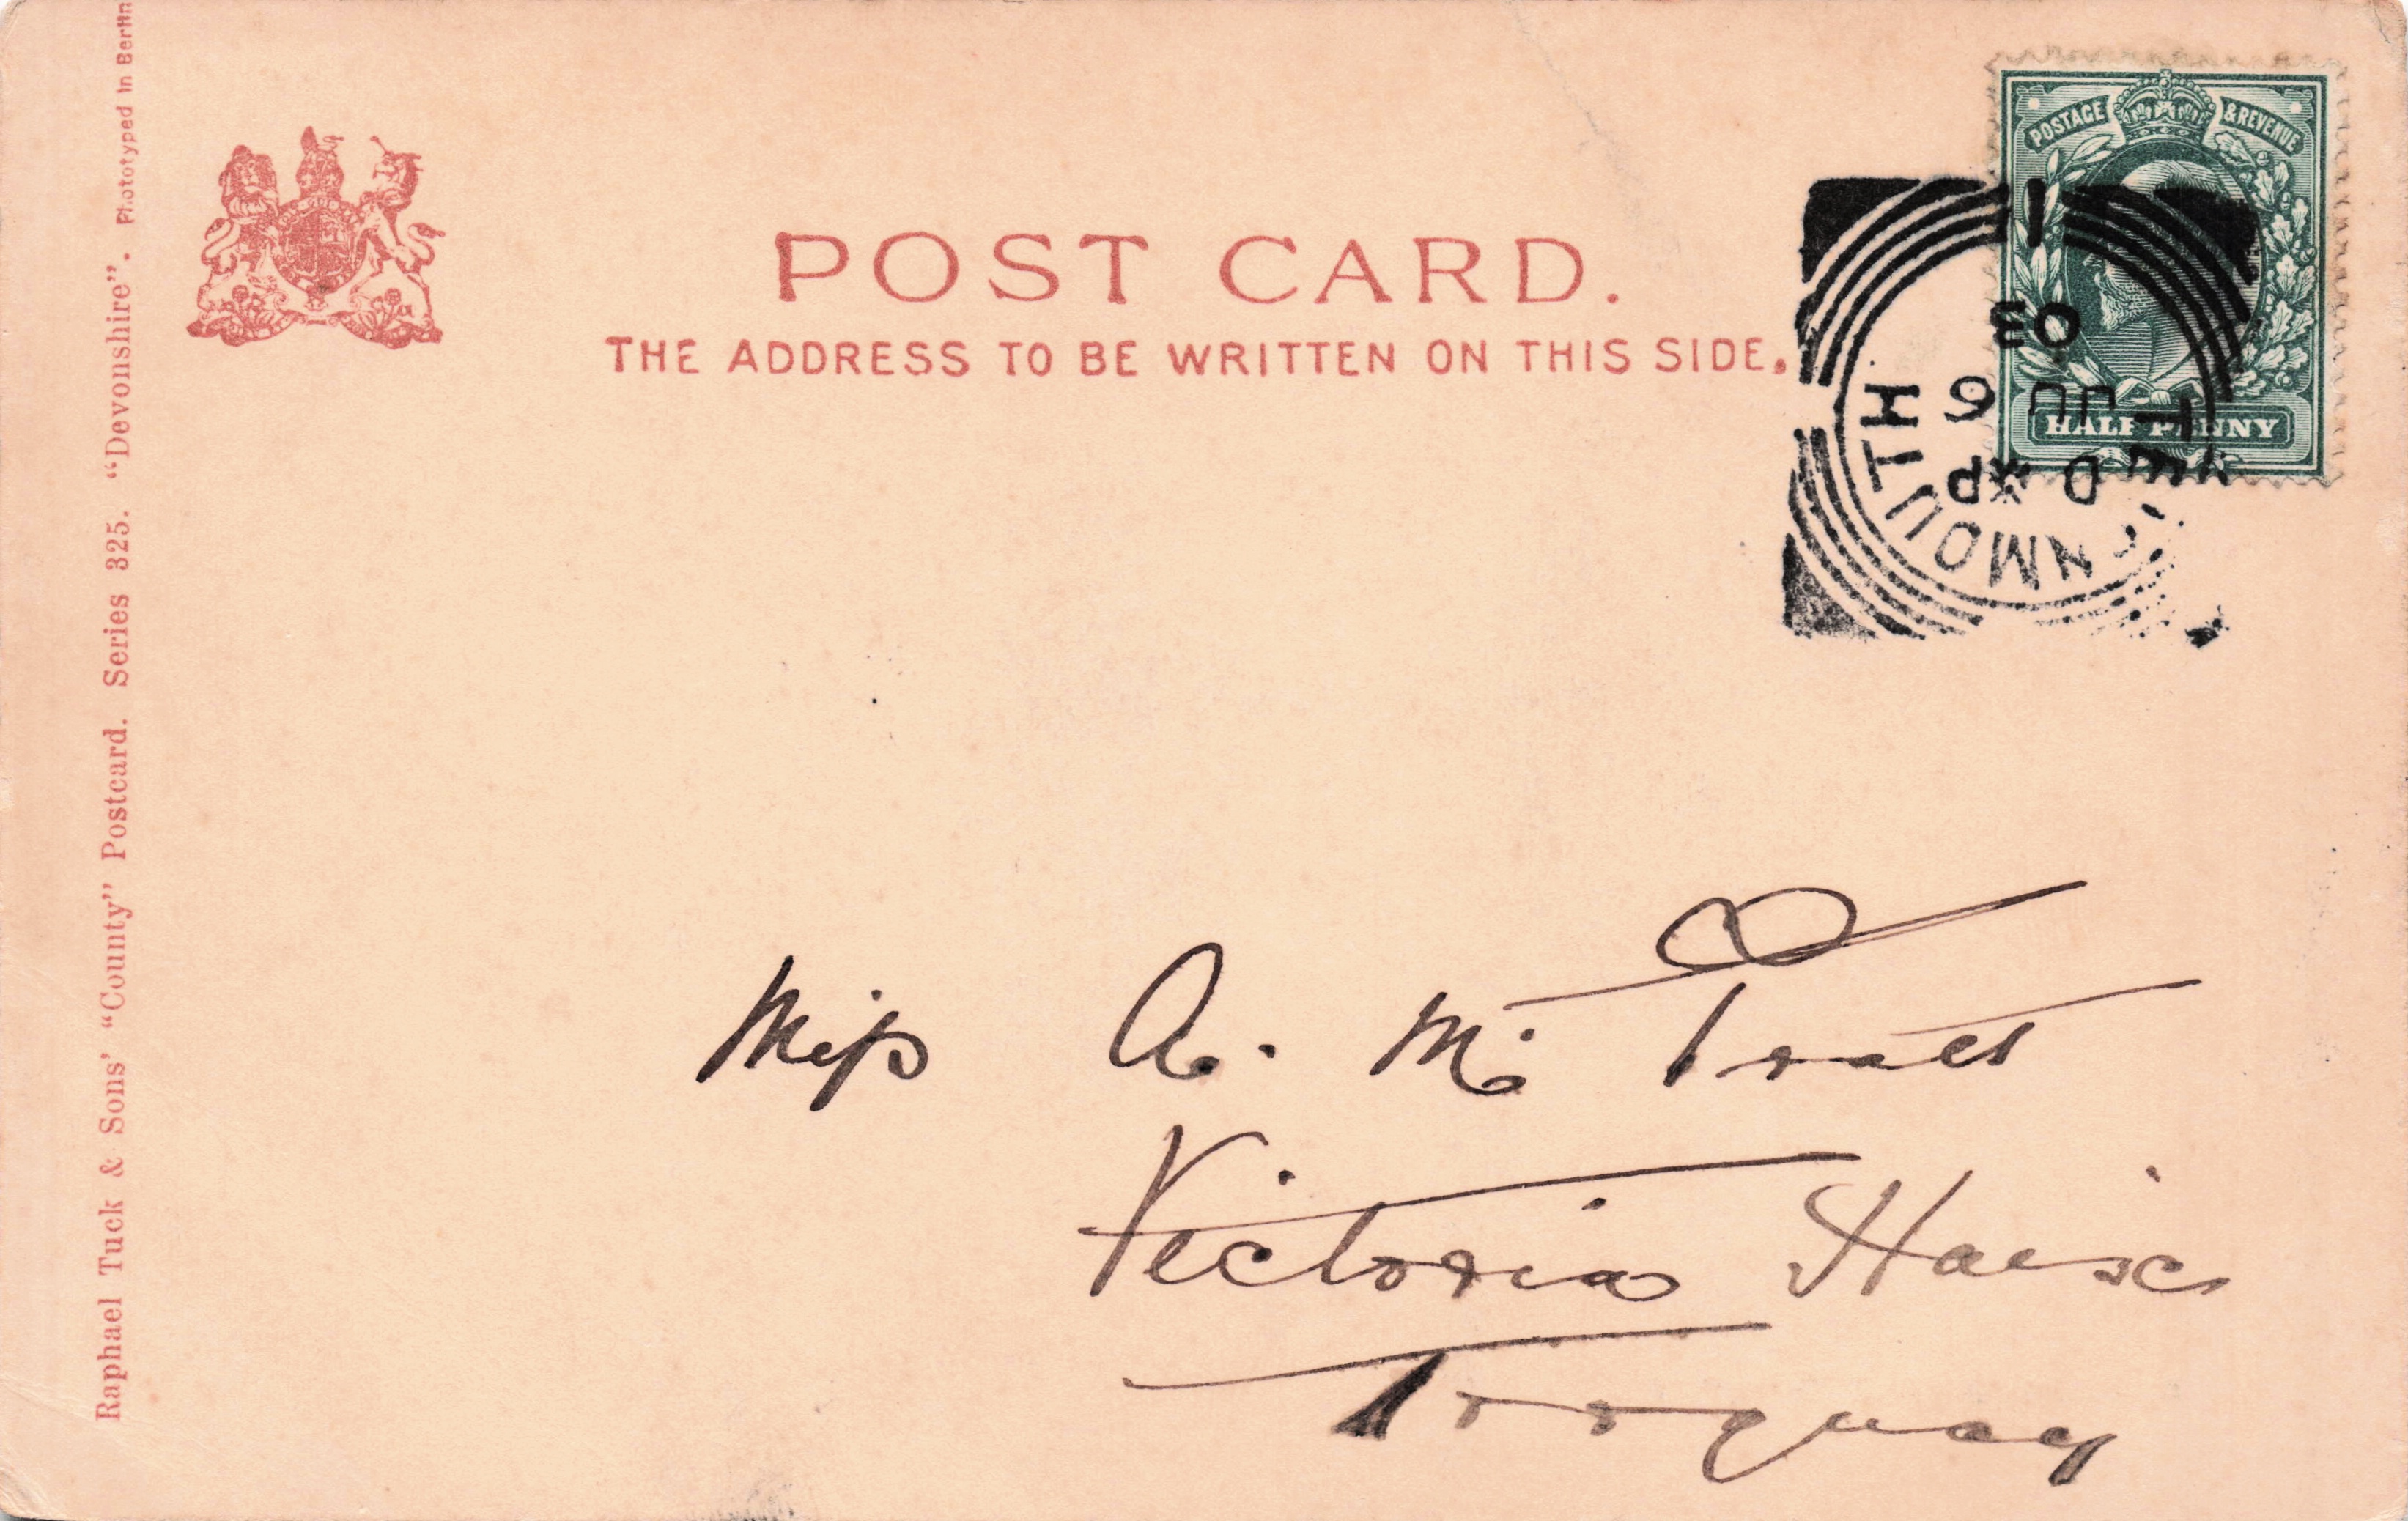 Raphael Tuck & Sons' "County" Postcard. Series 325. "Devonshire". Phototyped in Berlin
POST CARD.
THE ADDRESS TO BE WRITTEN ON THIS SIDE.
POSTAGE & REVENUE
HALF PENNY
1
03
JU 6
Miss A. M. Pratt
Victoria House
Torquay